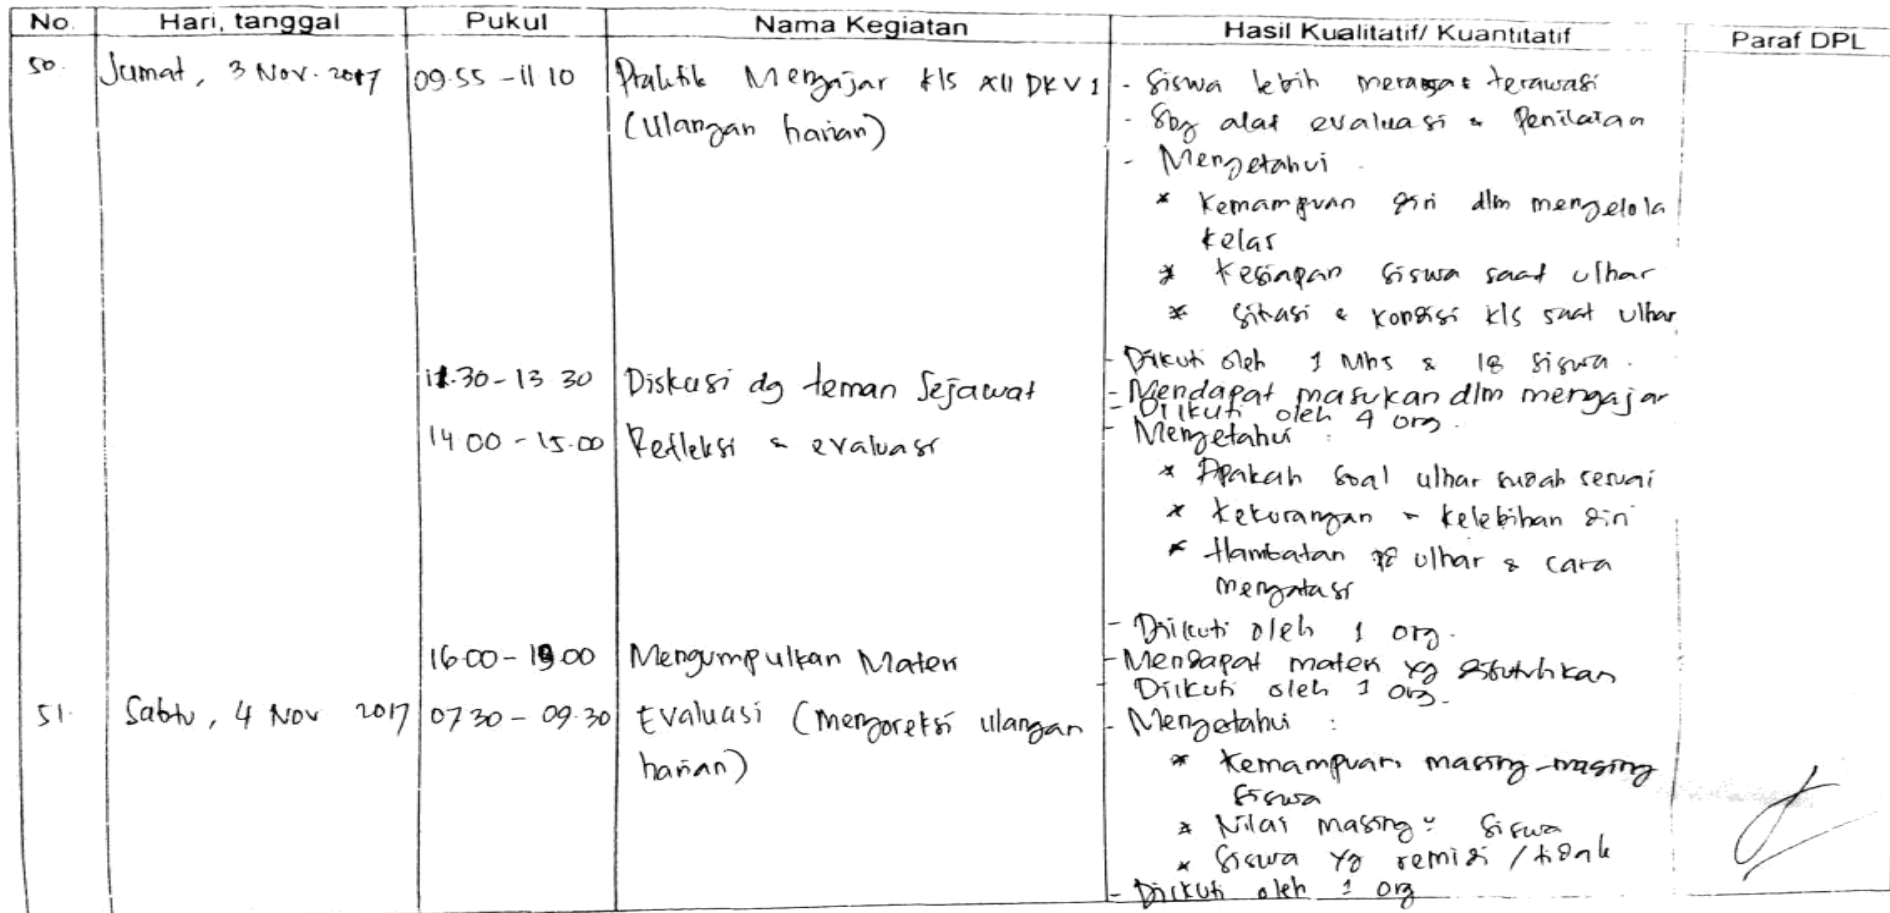 No. Hari, tanggal Pukul Nama Kegiatan Hasil Kualitatif/ Kuantitatif Paraf DPL
50. Jumat, 3 Nov. 2017 09.55 - 11.10 Praktik Mengajar kls XII DKV 1 - Siswa lebih merasa terawasi
(Ulangan harian) - Sbg alat evaluasi & Penilaian
- Mengetahui
* Kemampuan diri dlm mengelola
kelas
* Kesiapan siswa saat ulhar
* Sitasi & kondisi kls saat ulhar
- Diikuti oleh 1 Mhs & 18 siswa.
11.30 - 13.30 Diskusi dg teman Sejawat - Mendapat masukan dlm mengajar
- Diikuti oleh 4 org.
14.00 - 15.00 Refleksi & evaluasi - Mengetahui :
* Apakah soal ulhar sudah sesuai
* Kekurangan & kelebihan diri
* Hambatan ulhar & cara
mengatasi
- Diikuti oleh 1 org.
16.00 - 18.00 Mengumpulkan Materi - Mendapat materi yg dibutuhkan
- Diikuti oleh 1 org.
51. Sabtu, 4 Nov 2017 07.30 - 09.30 Evaluasi (mengoreksi ulangan - Mengetahui :
harian) * Kemampuan masing-masing
siswa
* Nilai masing² siswa
* Siswa yg remidi / tidak
- Diikuti oleh 1 org